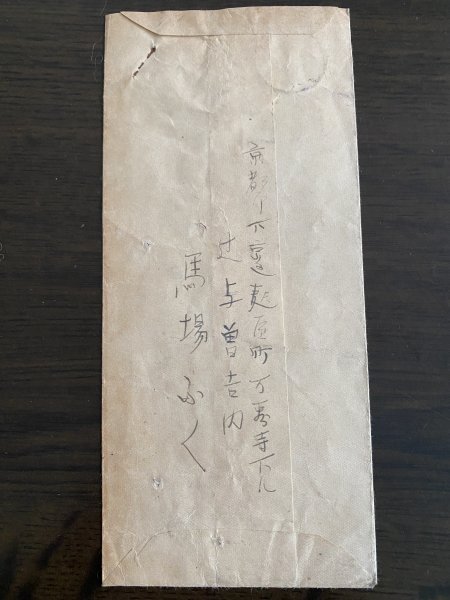 京都市下京区麩屋町万寿寺下ル
辻与曽吉内
馬場ふく